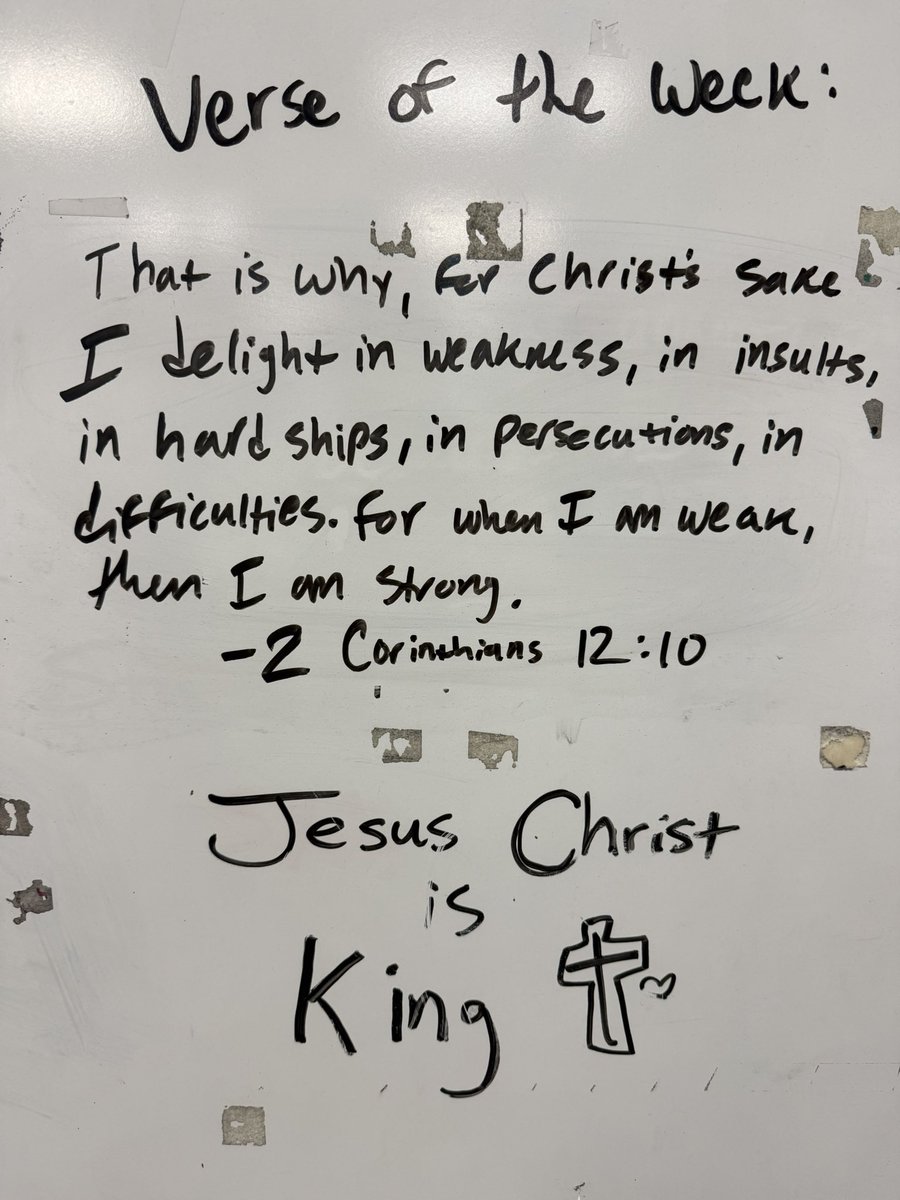 Verse of the Week:
That is why, for Christ's sake
I delight in weakness, in insults,
in hardships, in persecutions, in
difficulties. for when I am weak,
then I am strong.
-2 Corinthians 12:10
Jesus Christ
is
King